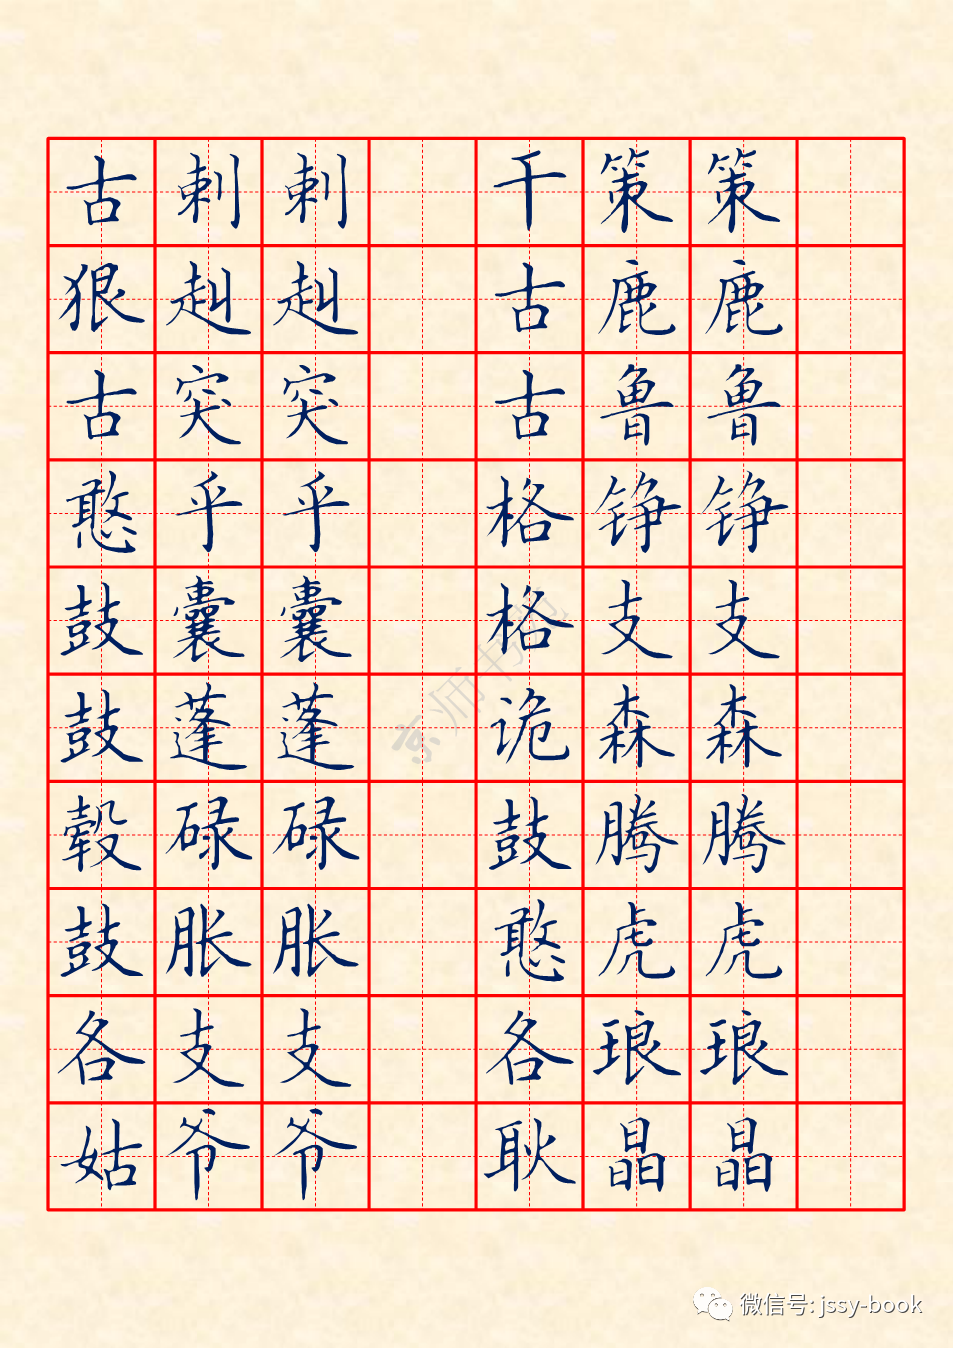 古剌剌 干策策
狠赳赳 古鹿鹿
古突突 古鲁鲁
憨乎乎 格铮铮
鼓囊囊 格支支
鼓蓬蓬 诡森森
毂碌碌 鼓腾腾
鼓胀胀 憨虎虎
各支支 各琅琅
姑爷爷 耿晶晶
京师书
微信号: jssy-book